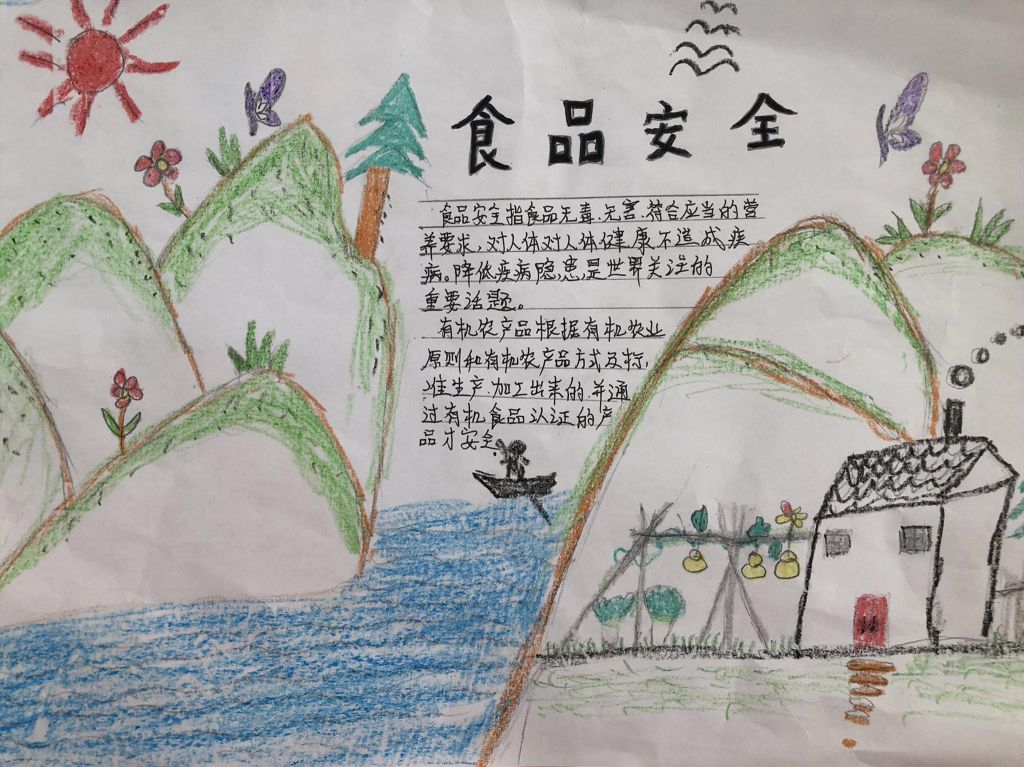 食品安全
食品安全指食品无毒、无害、符合应当的营
养要求,对人体对人体健康不造成疾
病。降低疾病隐患,是世界关注的
重要话题。
有机农产品根据有机农业
原则和有机农产品方式及标,
准生产、加工出来的,并通
过有机食品认证的产
品才安全